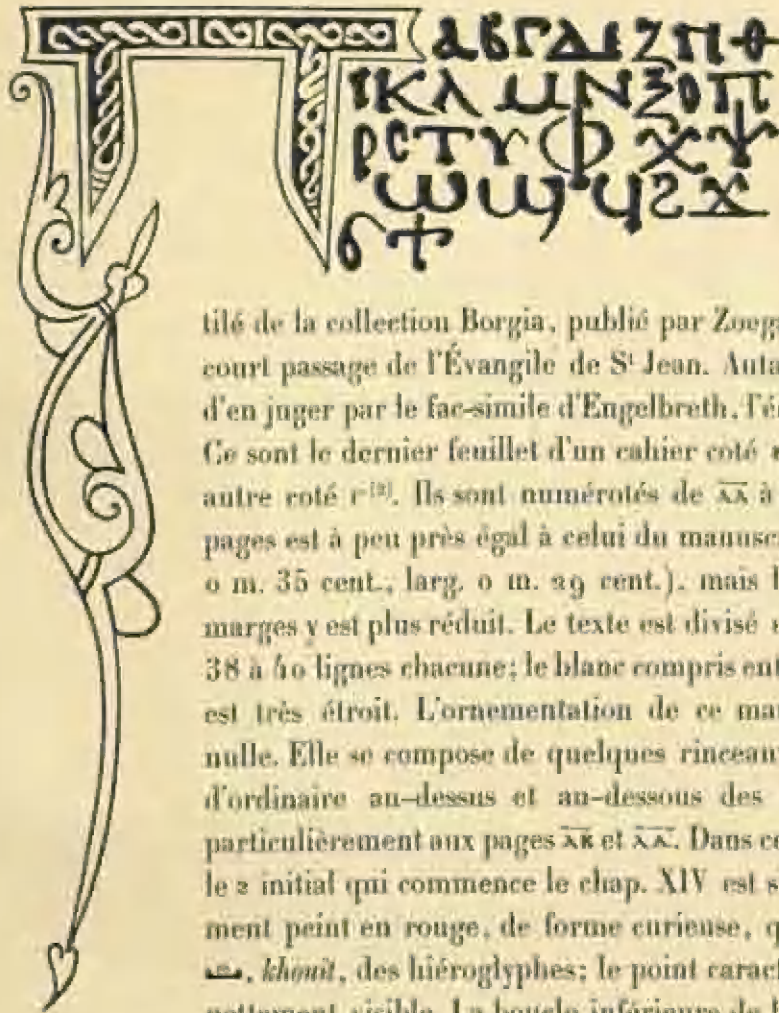 ⲁⲃⲅⲇⲉⲍⲏⲑ
ⲓⲕⲗⲙⲛⲝⲟⲡ
ⲣⲥⲧⲩⲫⲭⲯ
ⲱϣϥϩϫ
ϭϯ
tilé de la collection Borgia, publié par Zoeg
court passage de l'Évangile de Sᵗ Jean. Auta
d'en juger par le fac-simile d'Engelbreth, l'é
Ce sont le dernier feuillet d'un cahier coté
autre coté ⲅ. Ils sont numérotés de à
pages est à peu près égal à celui du manusc
0 m. 35 cent., larg. 0 m. 29 cent.), mais l
marges y est plus réduit. Le texte est divisé
38 à 40 lignes chacune; le blanc compris ent
est très étroit. L'ornementation de ce ma
nulle. Elle se compose de quelques rinceau
d'ordinaire au-dessus et au-dessous des
particulièrement aux pages et Dans c
le initial qui commence le chap. XIV est s
ment peint en rouge, de forme curieuse, q
khouit, des hiéroglyphes; le point carac
nettement visible. La boucle inférieure de